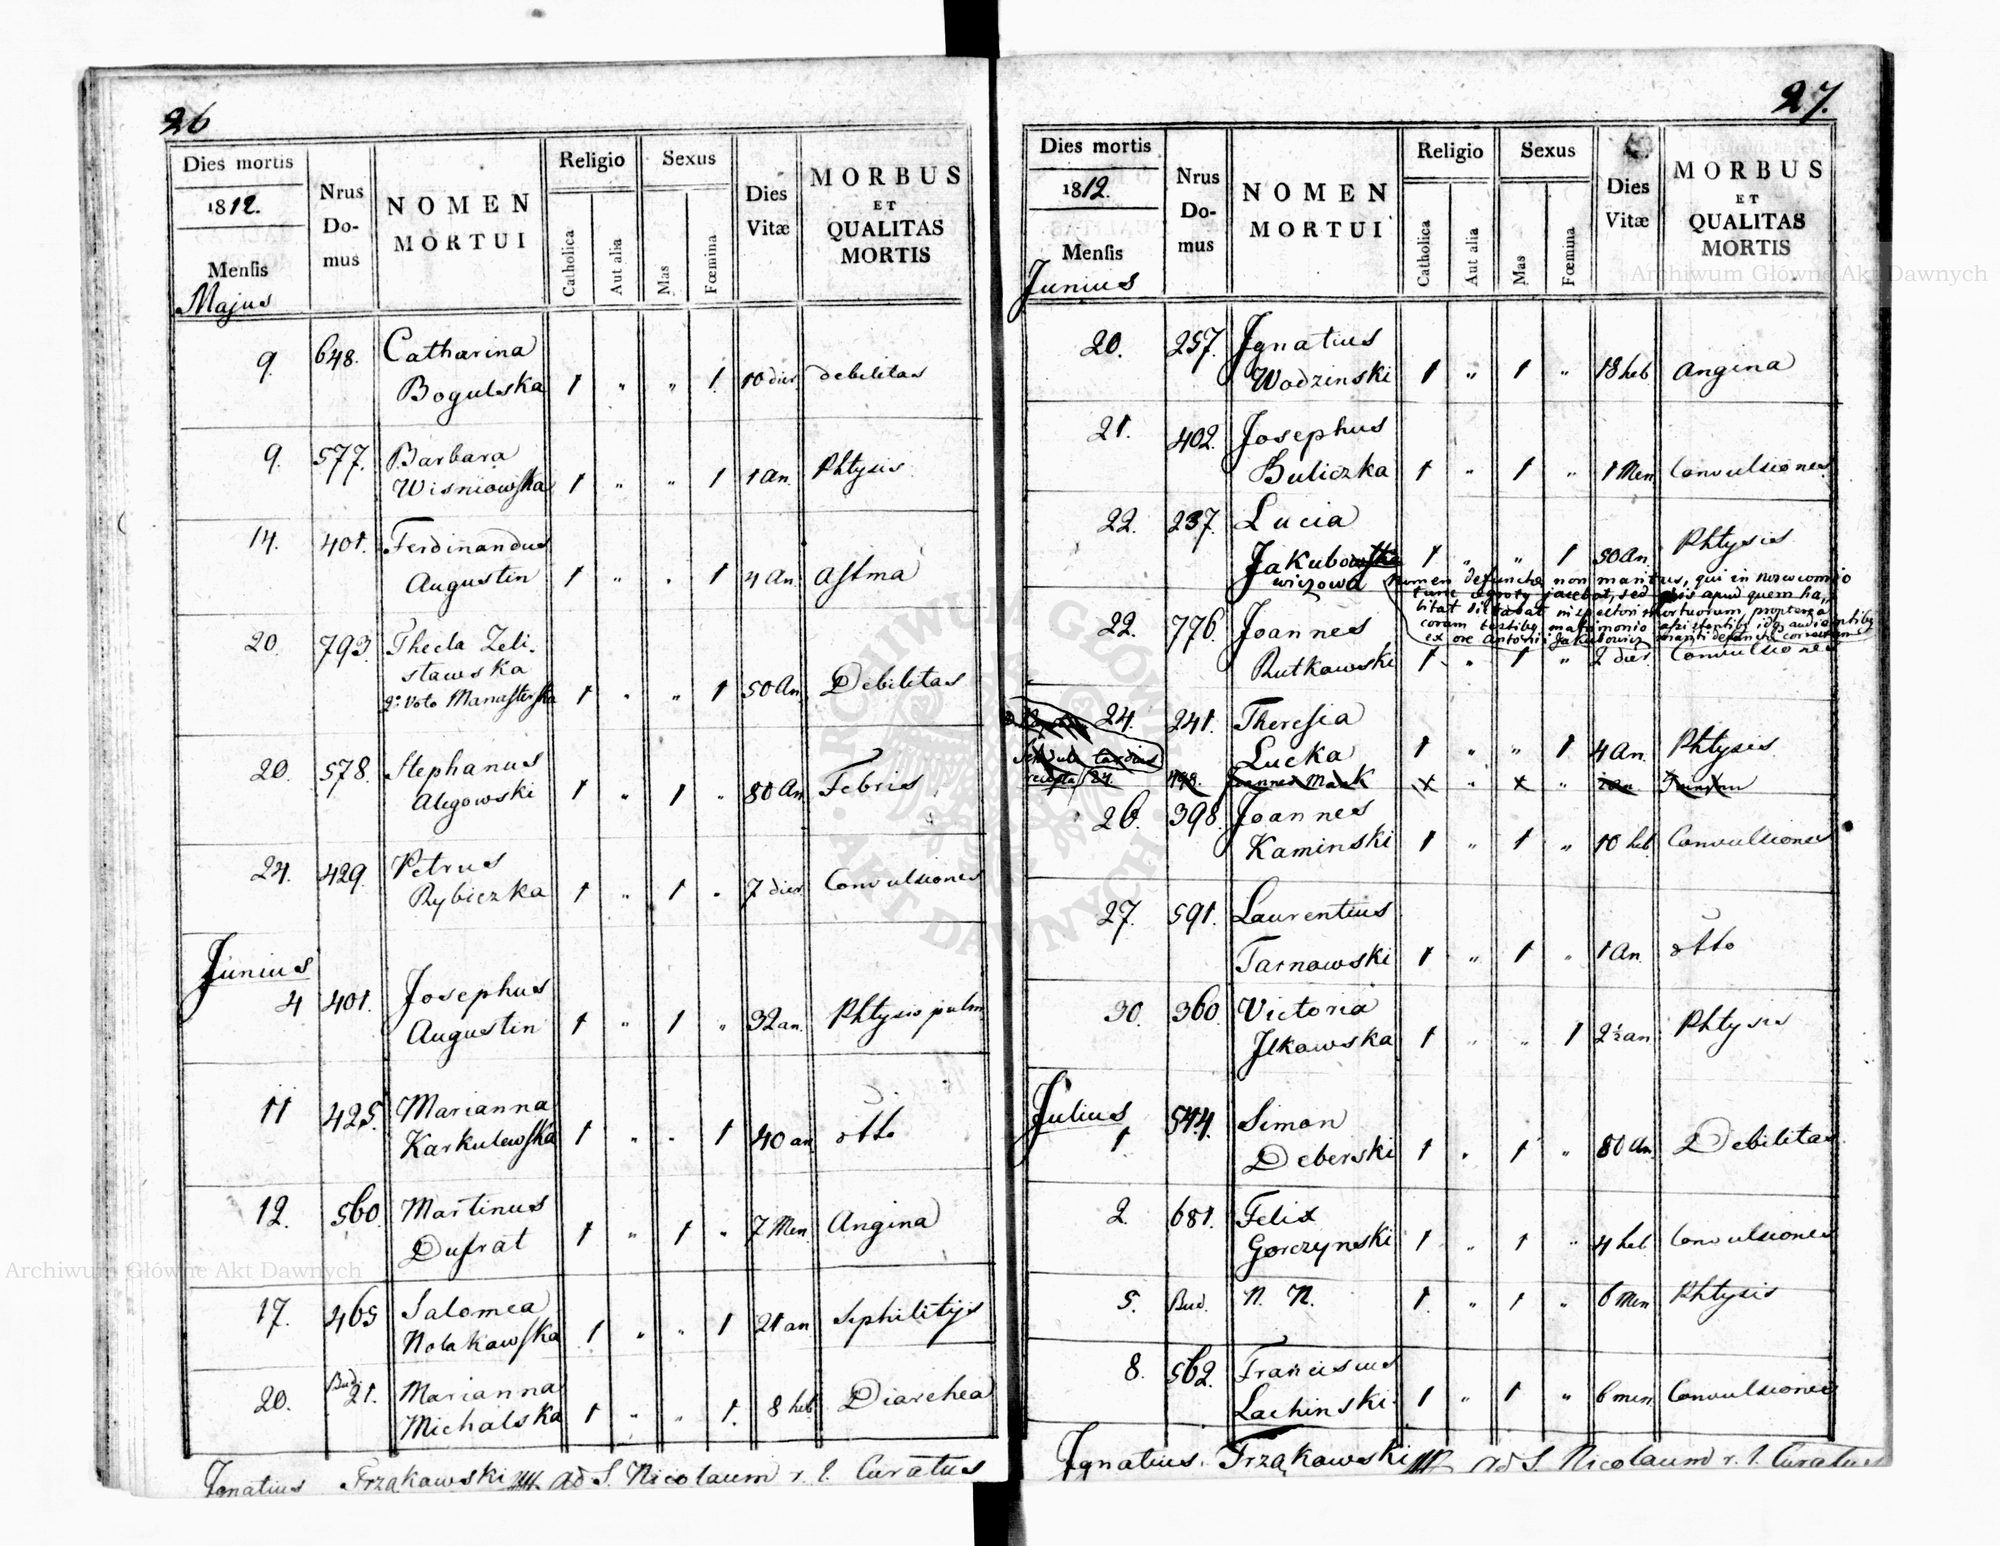 26
Dies mortis
1812.
Menſis
Majus
Nrus Do- mus
NOMEN MORTUI
Religio
Catholica
Aut alia
Sexus
Mas
Fœmina
Dies Vitæ
MORBUS ET QUALITAS MORTIS
9. 648. Catharina
Bogulska 1 " " 1 10 dier debilitas
9. 577. Barbara
Wisniowska 1 " " 1 1 an. Phtysis
14. 401. Ferdinandus
Augustin 1 " " 1 4 an. Astma
20. 793. Thecla Zeli-
stawska
2º voto Manasterska 1 " " 1 50 An. Debilitas
20. 578. Stephanus
Alegowski 1 " 1 " 80 An Febris
24. 429. Petrus
Rybiczka 1 " 1 " 7 dier. Convulsiones
Junius
4 401. Josephus
Augustin 1 " 1 " 32 an. Phtysis pulm.
11 425. Marianna
Karkulewska 1 " " 1 40 an otto
12. 560 Martinus
Dufrat 1 " 1 " 7 Men. Angina
17. 465 Salomea
Nolakawska 1 " " 1 21 an Siphilitijs
20. Bud. 21. Marianna
Michalska 1 " " 1. 8 heb. Diarrhea
Ignatius Trząkawski ad S. Nicolaum r. l. Curatus
27.
Dies mortis
1812.
Menſis
Junius
Nrus Do- mus
NOMEN MORTUI
Religio
Catholica
Aut alia
Sexus
Mas
Fœmina
Dies Vitæ
MORBUS ET QUALITAS MORTIS
20. 257. Ignatius
Wodzinski 1 " 1 " 18 heb Angina
21. 402. Josephus
Buliczka 1 " 1 " 1 Men Convulsiones
22. 237. Lucia
Jakubowska 1 " " 1 50 An. Phtysis
wiczowa
nomen defunctæ non maritus, qui in nosocomio
tunc ægroty jacebat, sed apud quem ha-
bitat dictabat inspectori mortuorum, propterea
coram testiby matrimonio assistentiby idq audientiby
ex ore Antonii Jakubowicz mariti defunctæ correctum
22. 776. Joannes
Rutkowski 1 " 1 " 2 dier. Convulsiones
24. 241. Theresia
Lucka 1 " " 1 4 An. Phtysis
recepta 24. 498. Joannes x " x "
26. 398. Joannes
Kaminski 1 " 1 " 10 heb. Convulsiones
27. 591. Laurentius
Tarnowski 1 " 1 " 1 An. otto
30. 360. Victoria
Ilkowska 1 " " 1 2½ an. Phtysis
Julius
1 544. Simon
Deberski 1 " 1 " 80 An. Debilitas
2. 681. Felix
Gorczynski 1 " 1 " 4 heb. Convulsiones
5. Bud. N. N. 1 " 1 " 6 Men Phtysis
8. 562. Franciscus
Lachinski 1 " 1 " 6 men. Convulsiones
Ignatius Trząkowski ad S. Nicolaum r. l. Curatus
Archiwum Główne Akt Dawnych
Archiwum Główne Akt Dawnych
ARCHIWUM GŁÓWNE AKT DAWNYCH